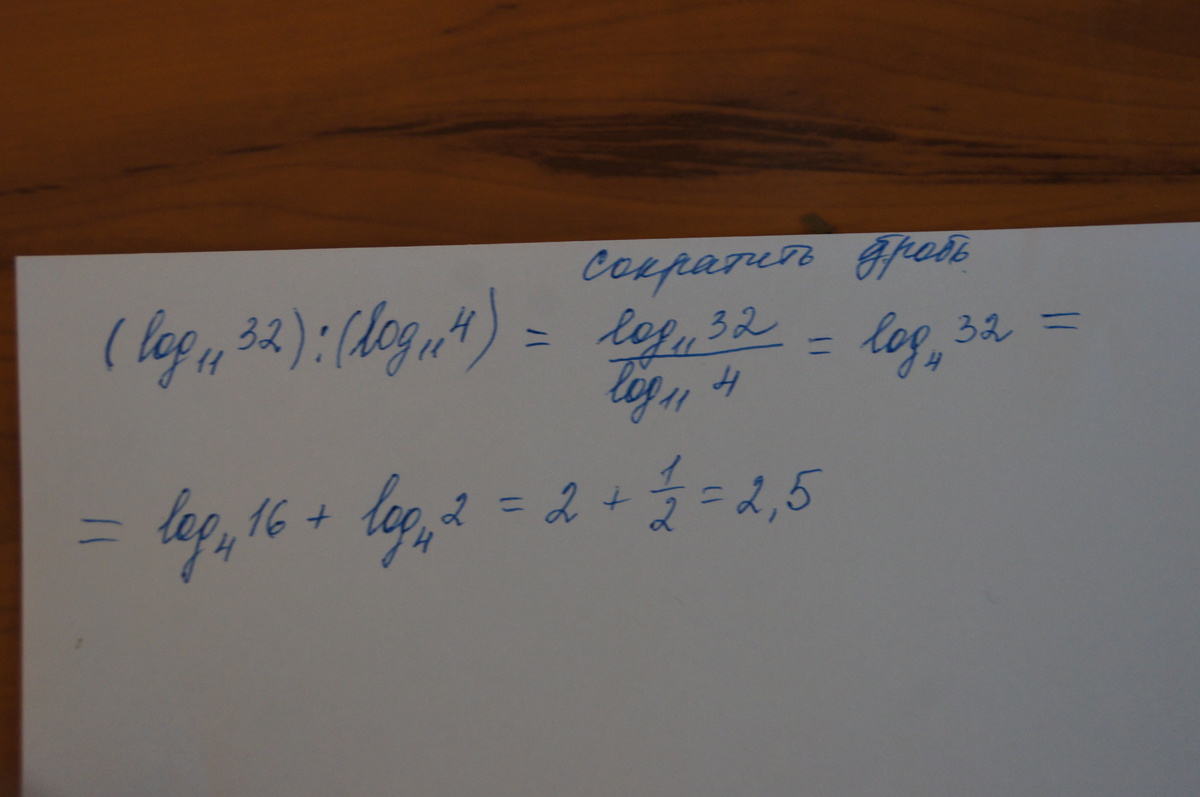 сократить дробь
(log₁₁ 32) : (log₁₁ 4) = log₁₁ 32 / log₁₁ 4 = log₄ 32 =
= log₄ 16 + log₄ 2 = 2 + 1/2 = 2,5